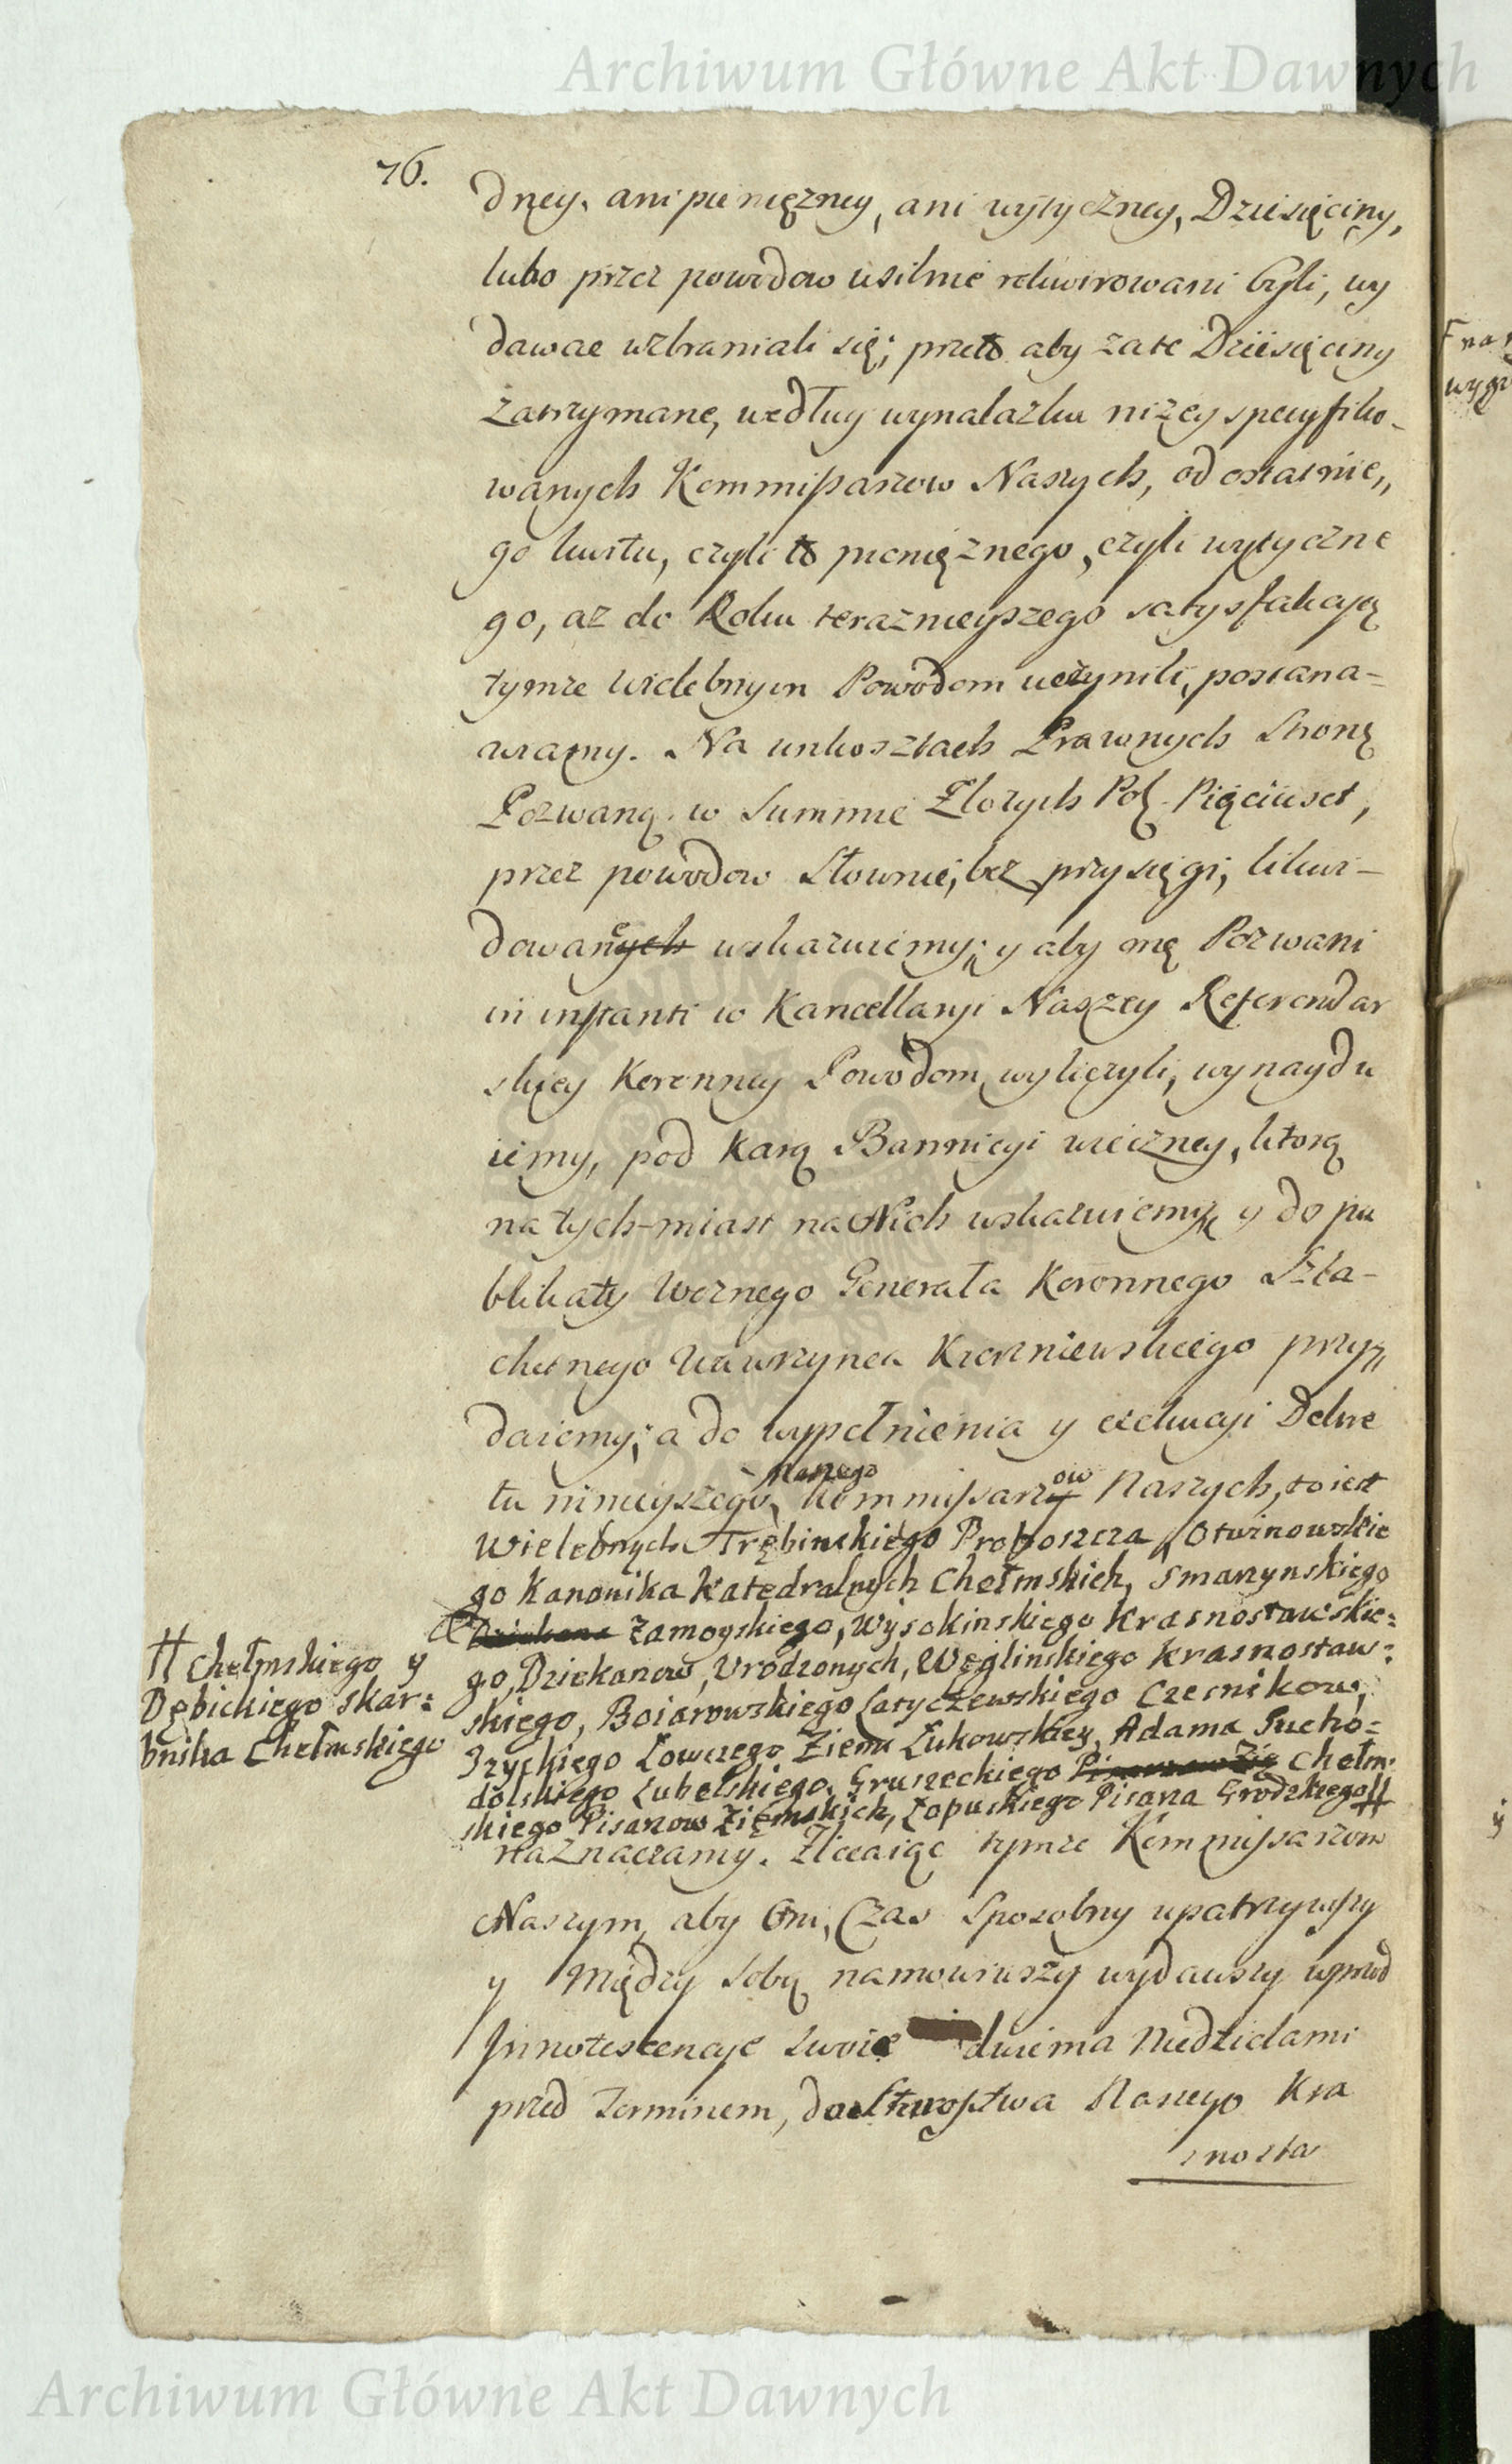 Archiwum Główne Akt Dawnych
76.
dney, ani pieniężney, ani wytyczney, Dziesięciny,
lubo przez powodow usilnie rekwirowani byli, wy
dawac wzbraniali się; przeto aby zate Dziesięciny
zatrzymane, według wynalazku niżey specyfiko-
wanych Kommissarzow Naszych, od ostatnie„
go kwitu, czyli to pieniężnego, czyli wytyczne
go, aż do Roku teraznieyszego satysfakcyą
tymże Wielebnym Powodom uczynili, postana-
wiamy. Na unkosztach Prawnych Stronę
Pozwaną w Summie Złotych Pol. Pięciuset,
przez powodow Słownie, bez przysięgi, likwi-
dowane wskazuiemy; y aby ię Pozwani
in instanti w Kancellaryi Naszey Referendar
skiey Koronney Powodom wyliczyli, wynaydu
iemy, pod karą Bannicyi wieczney, ktorą
natych-miast na Nich wskazuiemy y do pu
blikaty Woznego Generała Koronnego Szla-
chetnego Wawrzynca Krczniewskiego przy„
daiemy; a do wypełnienia y exekucyi Dekre
tu ninieyszego Naszego kommissarzow Naszych, to iest
Wielebnych Trębinskiego Proboszcza, Otwinowskie
go Kanonika Katedralnych Chełmskich, Smarzynskiego
Dziekana Zamoyskiego, Wysokinskiego Krasnostawskie:
go, Dziekanow, Urodzonych, Węglinskiego Krasnostaw:
skiego, Boiarowskiego Latyczewskiego Czesnikow,
Izyckiego Łowczego Ziemi Łukowskiey, Adama Sucho:
dolskiego Lubelskiego, Gruszeckiego Chełm:
skiego Pisarzow Ziemskich, Łopuskiego Pisarza Grodzkiego #
# Chełmskiego y
Dębickiego Skar:
bnika Chełmskiego
naznaczamy. Zlecaiąc tymże Kommissarzom
Naszym, aby Oni, Czas Sposobny upatrzywszy
y Między Sobą namowiwszy wydawszy wprzod
Innotescencye swoie dwiema Niedzielami
przed Terminem, do Starostwa Naszego Kra
snosta
Archiwum Główne Akt Dawnych